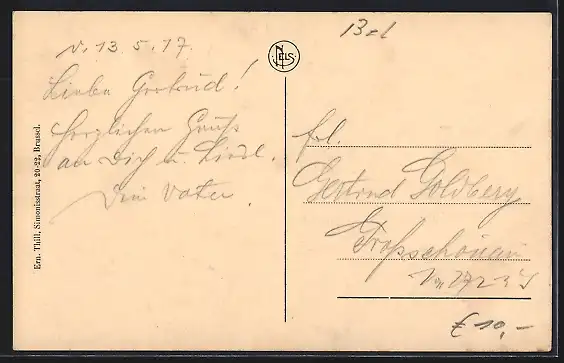 v. 13.5.17.
Liebe Gertrud!
Herzlichen Gruß
an Dich u. Liesl.
Dein Vater.
Ern. Thill, Simonisstraat, 20-22, Brussel.
NELS
Bel
Frl.
Gertrud Goldberg
Großschönau
€ 10,-